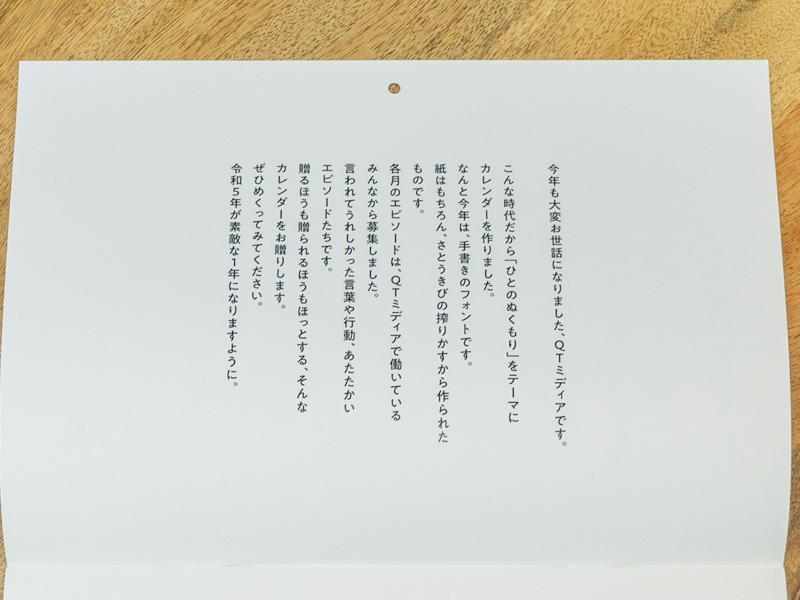 今年も大変お世話になりました、QTミディアです。
こんな時代だから「ひとのぬくもり」をテーマに
カレンダーを作りました。
なんと今年は、手書きのフォントです。
紙はもちろん、さとうきびの搾りかすから作られた
ものです。
各月のエピソードは、QTミディアで働いている
みんなから募集しました。
言われてうれしかった言葉や行動、あたたかい
エピソードたちです。
贈るほうも贈られるほうもほっとする、そんな
カレンダーをお贈りします。
ぜひめくってみてください。
令和5年が素敵な1年になりますように。